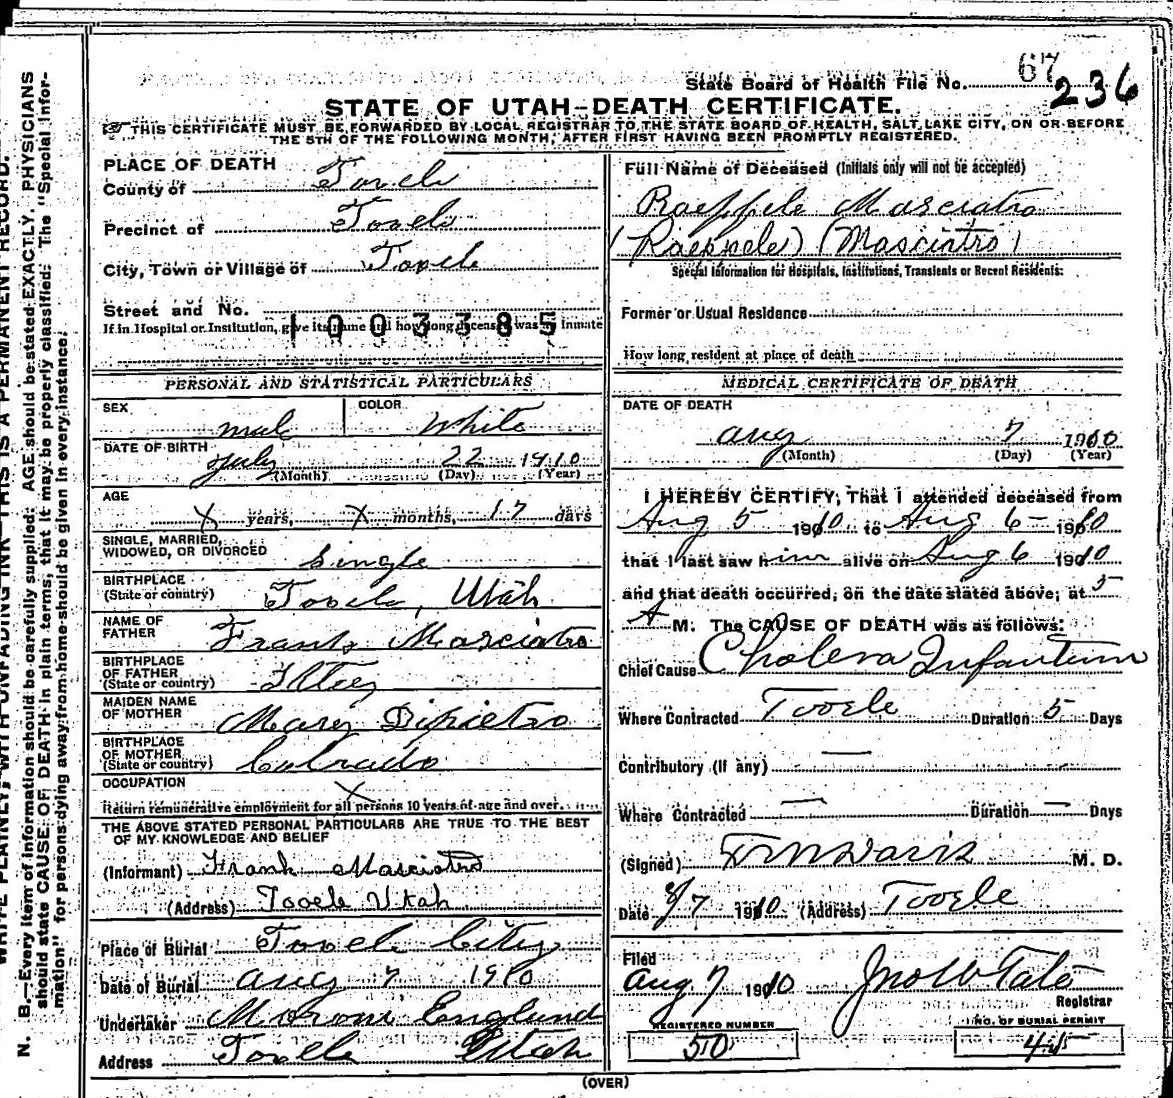 State Board of Health File No. 67
236
STATE OF UTAH—DEATH CERTIFICATE.
THIS CERTIFICATE MUST BE FORWARDED BY LOCAL REGISTRAR TO THE STATE BOARD OF HEALTH, SALT LAKE CITY, ON OR BEFORE
THE 5TH OF THE FOLLOWING MONTH, AFTER FIRST HAVING BEEN PROMPTLY REGISTERED.
PLACE OF DEATH
County of Tooele
Precinct of Tooele
City, Town or Village of Tooele
Street and No.
1003385
If in Hospital or Institution, give its name and how long deceased was an inmate
PERSONAL AND STATISTICAL PARTICULARS
SEX male
COLOR White
DATE OF BIRTH July 22 1910
(Month) (Day) (Year)
AGE
X years, X months, 17 days
SINGLE, MARRIED,
WIDOWED, OR DIVORCED Single
BIRTHPLACE
(State or country) Tooele, Utah
NAME OF
FATHER Frank Masciatro
BIRTHPLACE
OF FATHER
(State or country)
MAIDEN NAME
OF MOTHER Mary Dipietro
BIRTHPLACE
OF MOTHER
(State or country) Colorado
OCCUPATION X
Return remunerative employment for all persons 10 years of age and over.
THE ABOVE STATED PERSONAL PARTICULARS ARE TRUE TO THE BEST
OF MY KNOWLEDGE AND BELIEF
(Informant) Frank Masciatro
(Address) Tooele Utah
Place of Burial Tooele City
Date of Burial Aug 7 1910
Undertaker Moroni England
Address Tooele Utah
Full Name of Deceased (Initials only will not be accepted)
Raeppele Masciatro
(Raeppele) (Masciatro)
Special Information for Hospitals, Institutions, Transients or Recent Residents:
Former or Usual Residence
How long resident at place of death
MEDICAL CERTIFICATE OF DEATH
DATE OF DEATH
Aug 7 1910
(Month) (Day) (Year)
I HEREBY CERTIFY, That I attended deceased from
Aug 5 1910 to Aug 6 1910
that I last saw him alive on Aug 6 1910
and that death occurred, on the date stated above, at 5
A M. The CAUSE OF DEATH was as follows:
Chief Cause Cholera Infantum
Where Contracted Tooele Duration 5 Days
Contributory (If any) —
Where Contracted — Duration — Days
(Signed) Davis M. D.
Date 8/7 1910 (Address) Tooele
Filed
Aug 7 1910 Jno W Tate
Registrar
REGISTERED NUMBER
50
NO. OF BURIAL PERMIT
45
(OVER)
WRITE PLAINLY, WITH UNFADING INK—THIS IS A PERMANENT RECORD.
N. B.—Every item of information should be carefully supplied. AGE should be stated EXACTLY. PHYSICIANS
should state CAUSE OF DEATH in plain terms, that it may be properly classified. The "Special Infor-
mation" for persons dying away from home should be given in every instance.